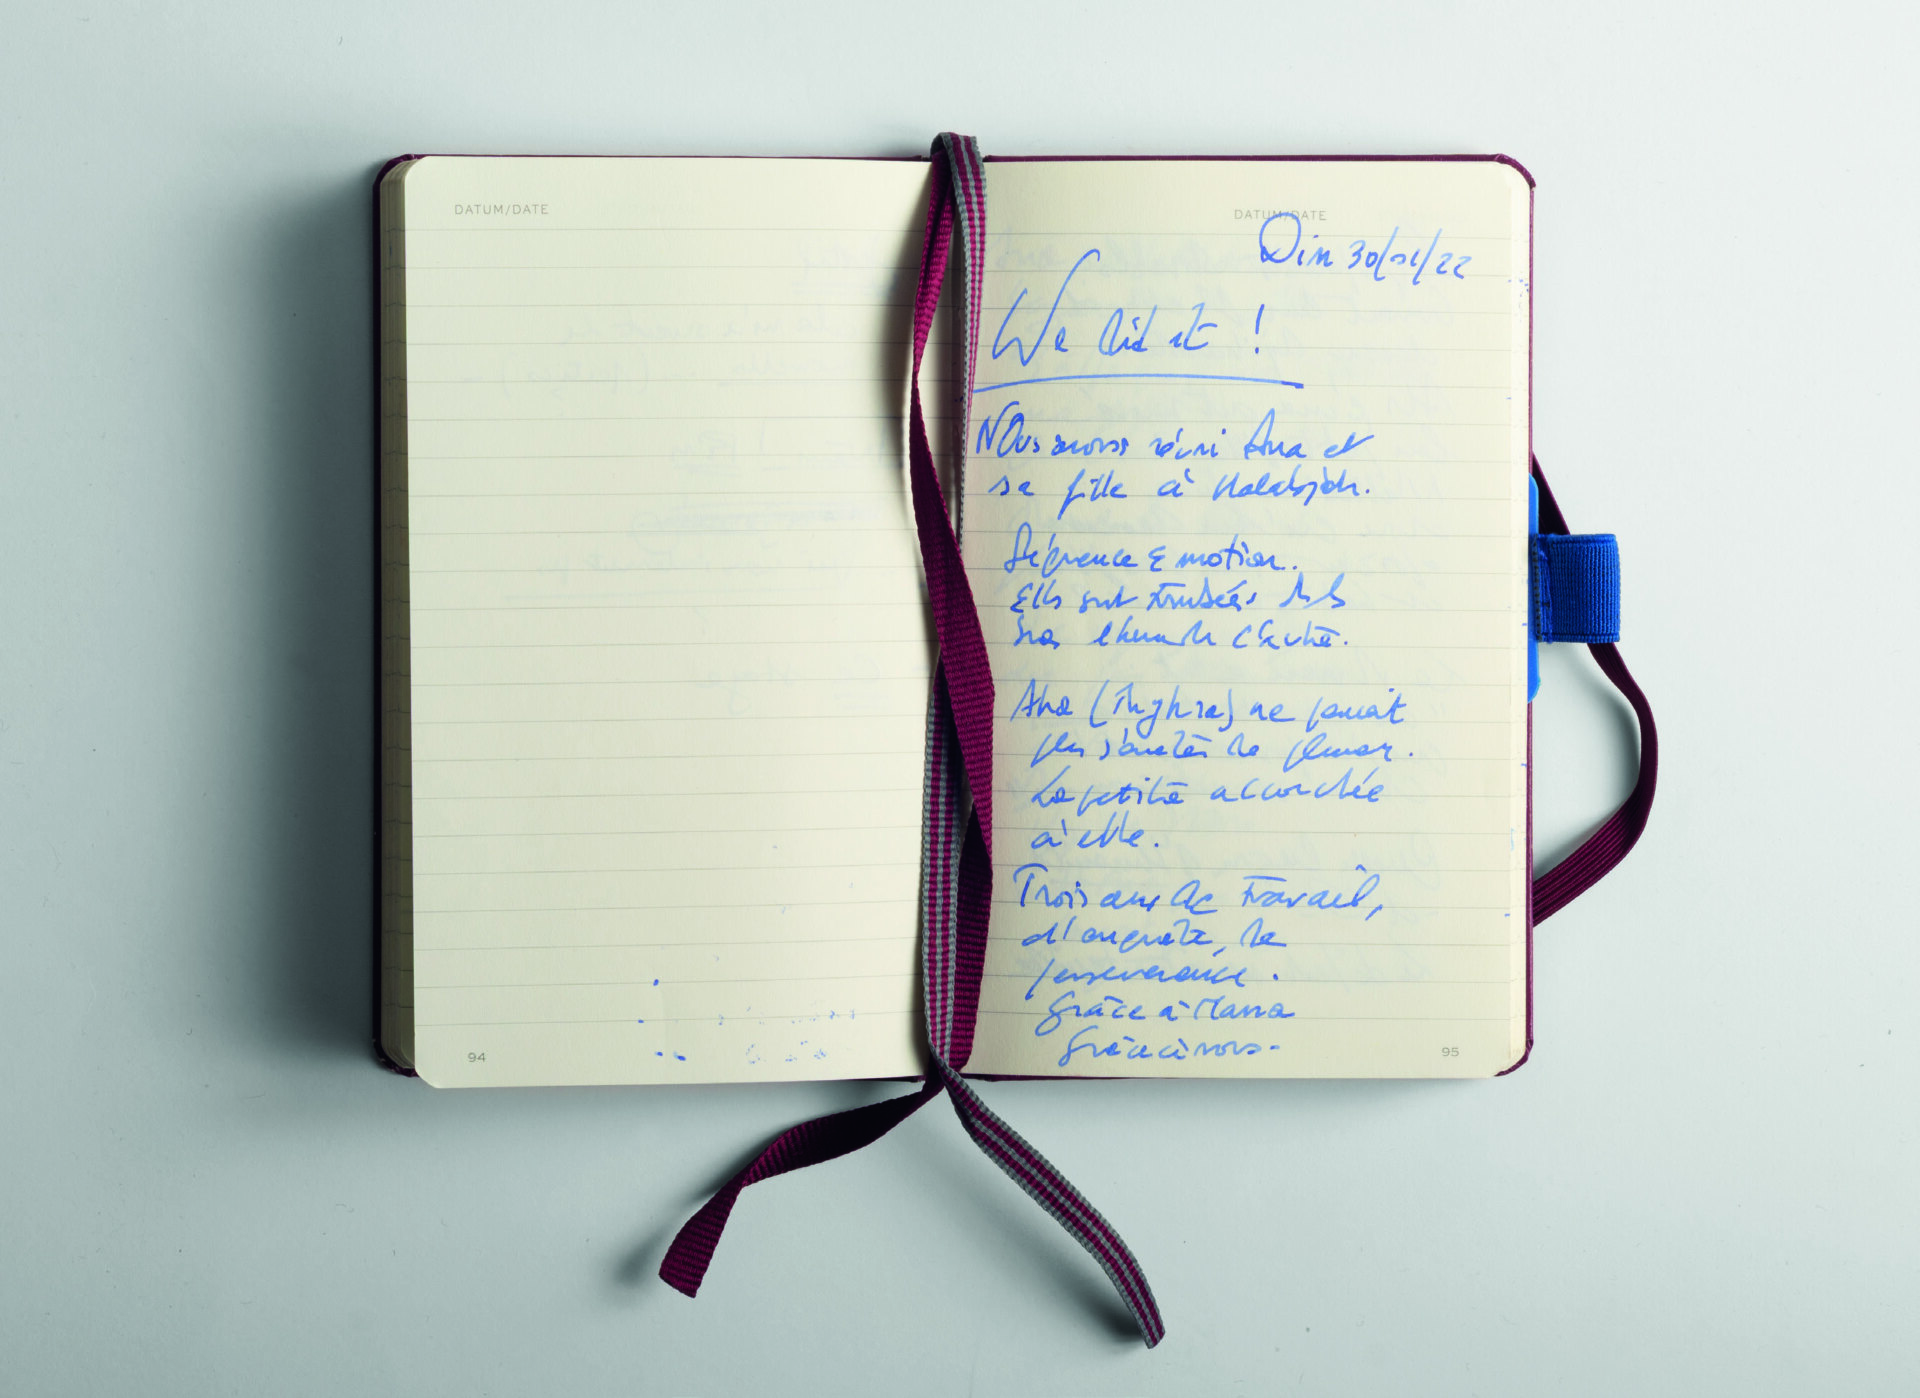 DATUM/DATE
94
DATUM/DATE
Dim 30/01/22
We did it !
Nous avons réuni Ana et
sa fille à Halabjah.
Séquence Emotion.
Elles sont tombées ds les
bras l'une de l'autre.
Ana ( ) ne pouvait
pas s'arrêter de pleurer.
La petite accrochée
à elle.
Trois ans de travail,
d'enquête, de
perseverance.
Grâce à Mana
Grâce à nous.
95